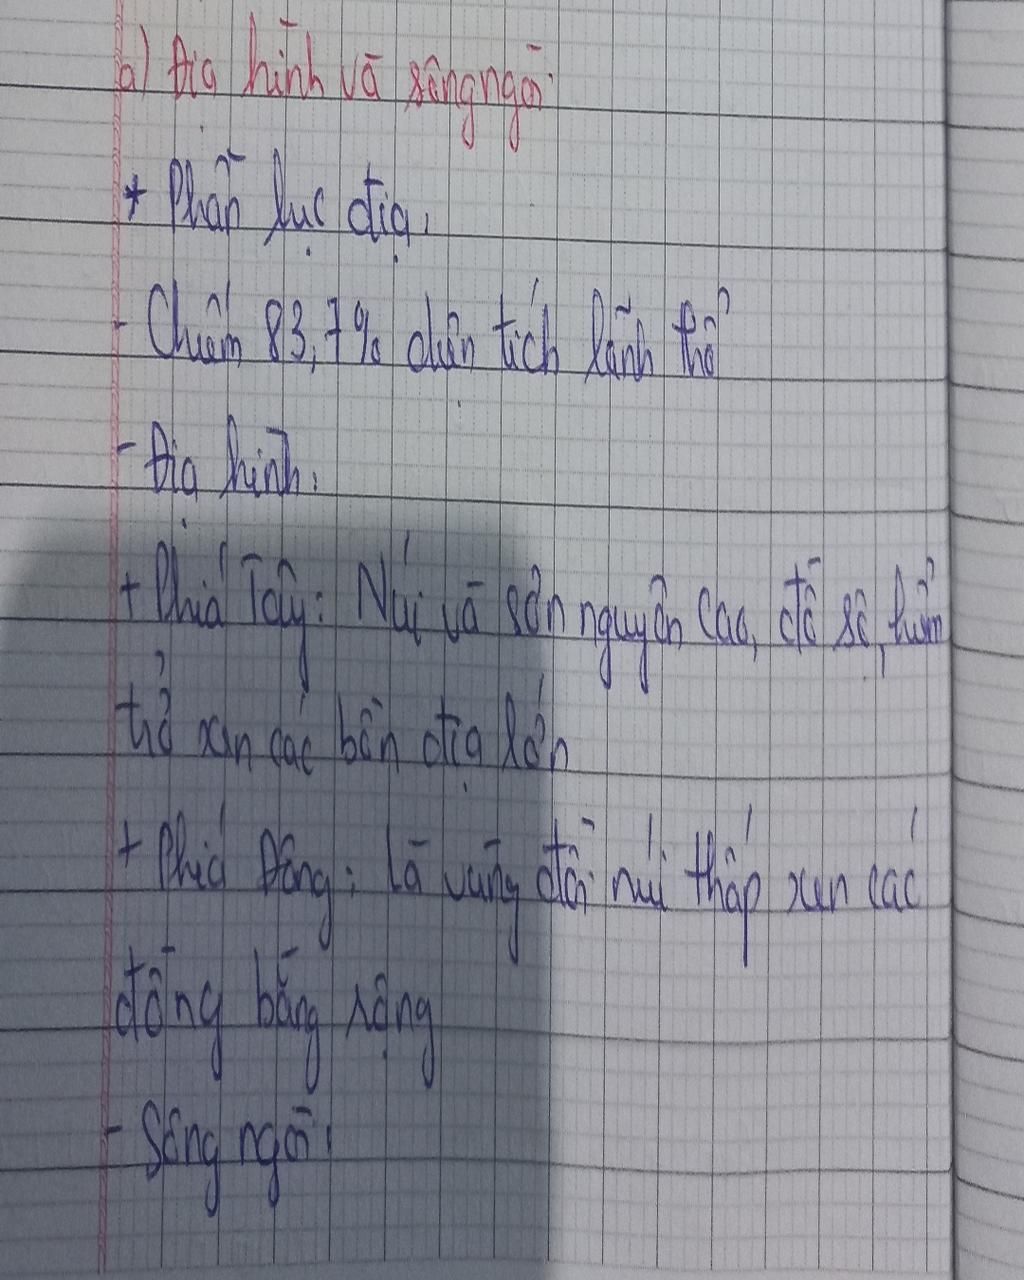 a) Địa hình và sông ngòi
* Phần lục địa:
- Chiếm 83,7% diện tích lãnh thổ
- Địa hình:
+ Phía Tây: Núi và sơn nguyên cao, đồ sộ, hiểm
trở xen các bồn địa lớn
+ Phía Đông: là vùng đồi núi thấp xen các
đồng bằng rộng
- Sông ngòi: